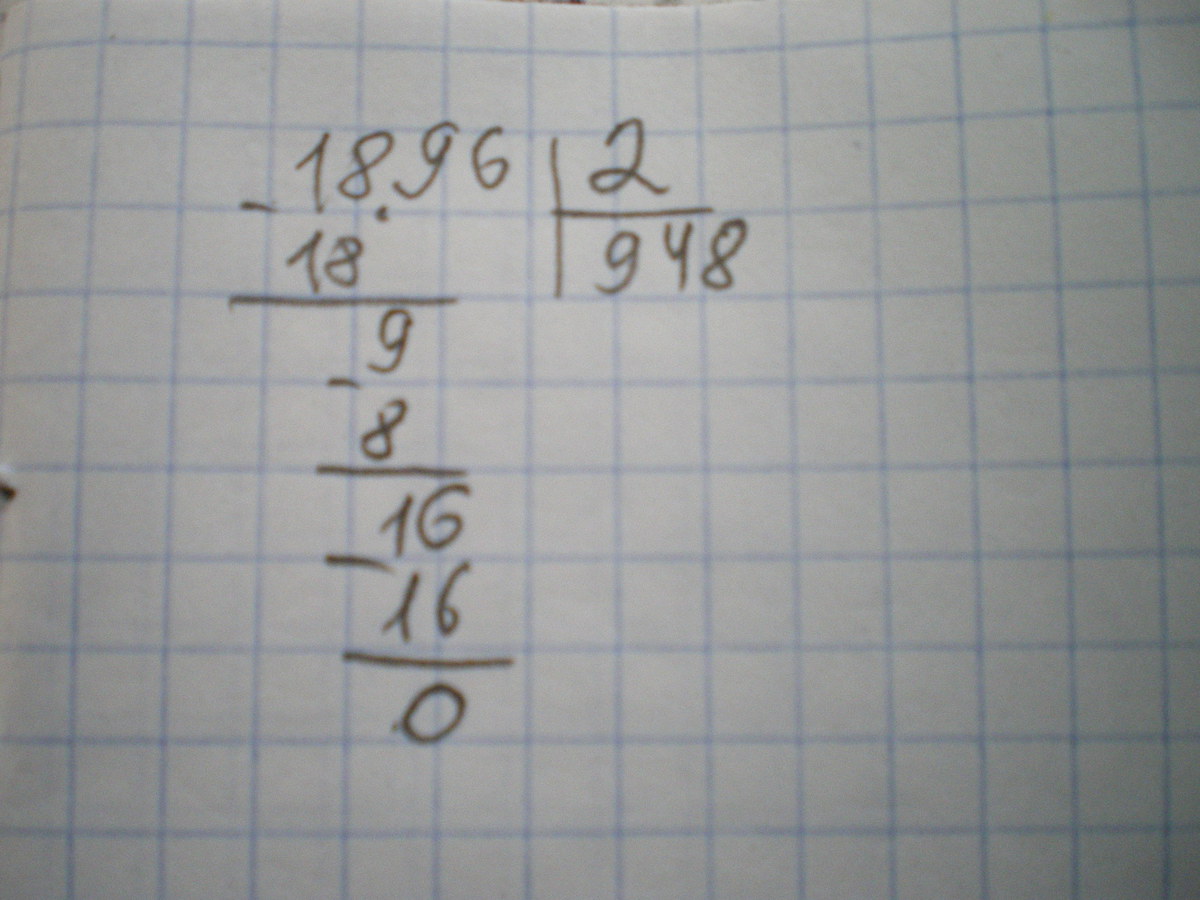 - 18.96 | 2
18 | 948
9
- 8
16
- 16
0